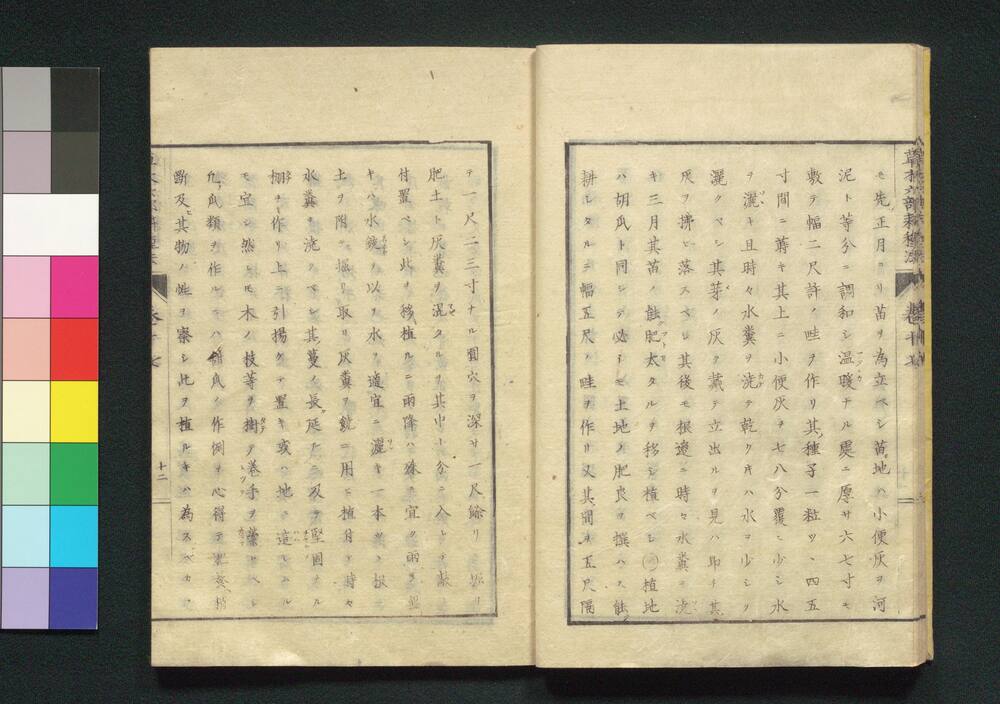 モ先正月ヨリ苗ヲ為立ベシ苗地ハ小便灰ヲ河
泥ト等分ニ調和シ温暖ナル處ニ厚サ六七寸モ
敷テ幅二尺許ノ畦ヲ作リ其種子一粒ツヽ四五
寸間ニ蒔キ其上ニ小便灰ヲ七八分覆ヒ少シ水
ヲ灑キ且時々水糞ヲ澆テ乾クキハ水ヲ少シク
灑クベシ其芽ノ灰ヲ戴テ立出ルヲ見ハ即チ其
灰ヲ拂ヒ落スベシ其後モ根邊ニ時々水糞ヲ澆
キ三月其苗ノ肥太タルヲ移シ植ベシ植地
ハ胡瓜ト同シテ必シモ土地ノ肥良ヲ撰ハス能
耕シタルニ幅五尺ノ畦ヲ作リ又其間ヲ五尺隔
テ一尺二三寸ナル圓穴ヲ深サ一尺餘リ堀リ
肥土ト灰糞ヲ混タルヲ其中十分ニ入レテ
付置ベシ此ヲ移植ルニ雨降ハ殊ニ宜ク雨ヲ
キハ水ヲ以テ水ヲ適宜ニ灑キ一本ツヽ根ニ
土ヲ附テ堀リ取リ灰糞ヲ用ヒ植付ヨ時々
水糞ヲ澆クベシ其蔓ノ長延タルニ及ヲ堅固ナル
棚ヲ作リ上ニ引揚ケテ置キ或ハ地ニ這シムル
モ宜シ然レモ木ノ枝等ヲ樹テ巻手ヲ
凡瓜類ヲ作ルニハ瓜ノ作例ヲ心得テ
斷及其物ノ性ヲ察シ此ヲ植ルキハ為スベカラ
十二